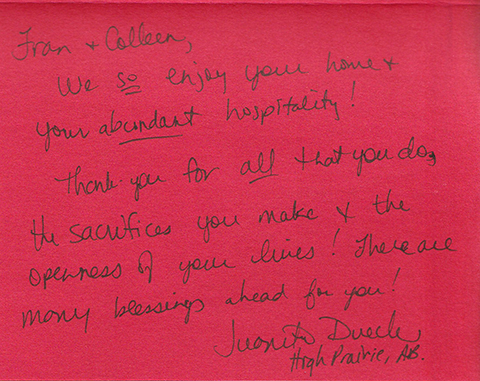 Fran & Colleen,
We so enjoy your home &
your abundant hospitality!
Thank-you for all that you do,
the sacrifices you make & the
openness of your lives! There are
many blessings ahead for you!
Juanita Dueck
High Prairie, AB.